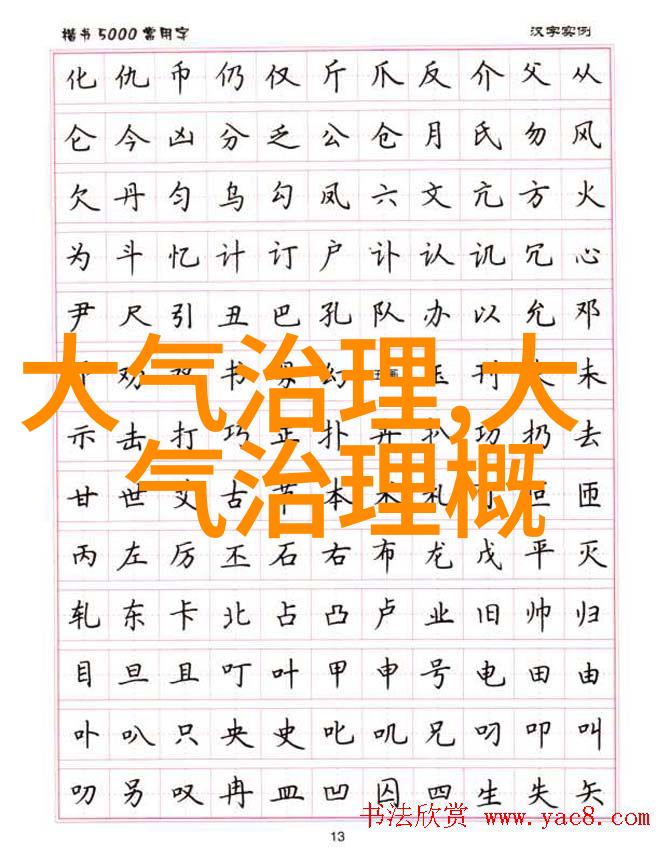 楷书5000常用字 汉字实例
化仇币仍仅斤爪反介父从
仑今凶分乏公仓月氏勿风
欠丹匀乌勾凤六文亢方火
为斗忆计订户讣认讥冗心
尹尺引丑巴孔队办以允邓
劝 书 幻 刊 未
大气治理,大
示击打巧正扑 扒功扔去
气治理概
甘世 古节本术札 匝
丙左厉丕石右布龙戊平灭
轧东卡北占凸卢业旧帅归
目旦且叮叶甲申号电田由
卟叭只央史叱叽兄叼叩叫
叨另叹冉皿凹囚四生失矢
书法欣赏 www.yac8.com
13